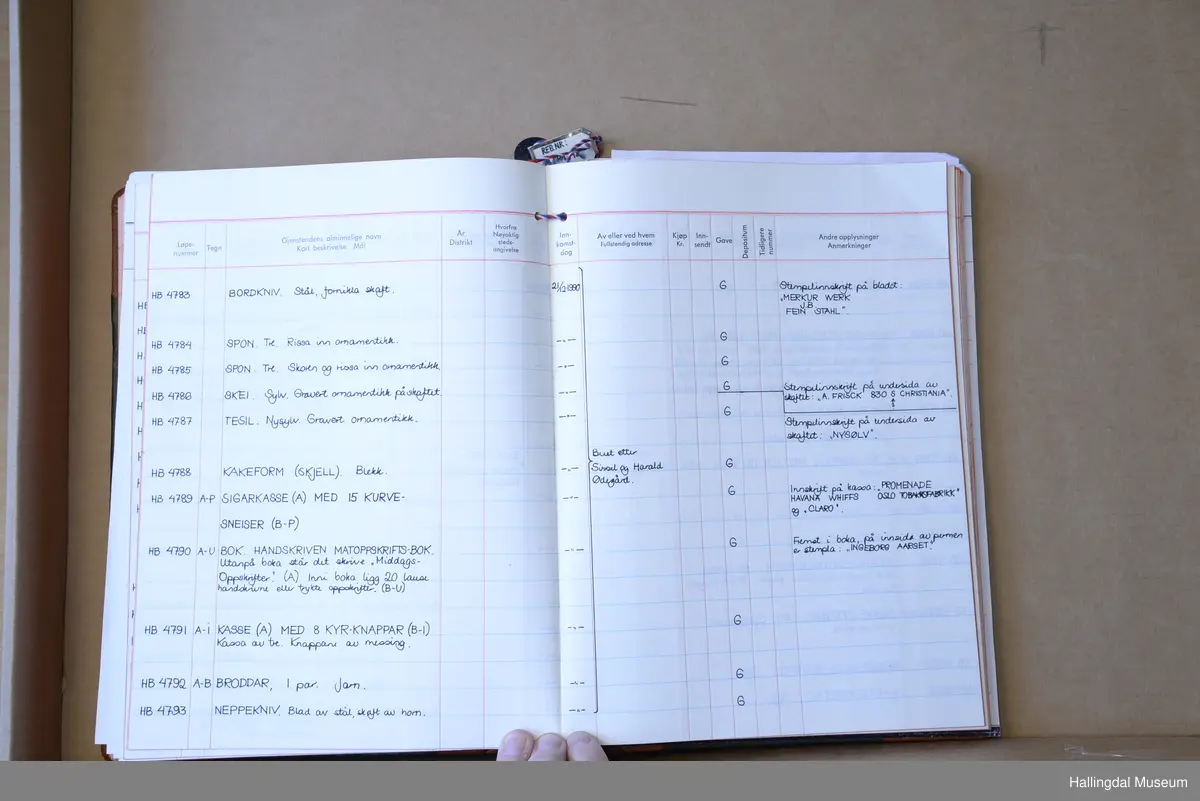 REG.NR.:
Løpe-
nummer
Tegn
Gjenstandens alminnelige navn
Kort beskrivelse Mål
År.
Distrikt
Hvorfra
Nøyaktig
steds-
angivelse
Inn-
komst-
dag
Av eller ved hvem
Fullstendig adresse
Kjøp
Kr.
Inn-
sendt
Gave
Depositum
Tidligere
nummer
Andre opplysninger
Anmerkninger
HB 4783 BORDKNIV. Stål, fornikla skaft. 21/2-1990 G Stempelinnskrift på bladet:
"MERKUR WERK
J.B
FEIN STAHL".
HB 4784 SPON. Tre. Rissa inn ornamentikk. -"- G
HB 4785 SPON. Tre. Skoren og rissa inn ornamentikk. -"- G
HB 4786 SKEI. Sylv. Gravert ornamentikk på skaftet. -"- G Stempelinnskrift på undersida av
skaftet: "A. FRISCK 830 S CHRISTIANIA".
HB 4787 TESIL. Nysylv. Gravert ornamentikk. -"- G Stempelinnskrift på undersida av
skaftet: "NYSØLV".
Buet etter
Sissel og Harald
Ødegård.
HB 4788 KAKEFORM (SKJELL). Blekk. -"- G
HB 4789 A-P SIGARKASSE (A) MED 15 KURVE-
SNEISER (B-P) -"- G Innskrift på kassa: "PROMENADE
HAVANA WHIFFS OSLO TOBAKKSFABRIKK"
og "CLARO".
HB 4790 A-U BOK. HANDSKRIVEN MATOPPSKRIFTS-BOK. -"- G Fremst i boka, på innsida av permen
er stempla: "INGEBORG AARSET".
Utanpå boka står det skrive "Middags-
Oppskrifter." (A) Inni boka ligg 20 lause
handskrivne eller trykte oppskrifter. (B-U)
HB 4791 A-I KASSE (A) MED 8 KYR-KNAPPAR (B-I) -"- G
Kassa av tre. Knappane av messing.
HB 4792 A-B BRODDAR, 1 par. Jarn. -"- G
HB 4793 NEPPEKNIV. Blad av stål, skaft av horn. -"- G
Hallingdal Museum